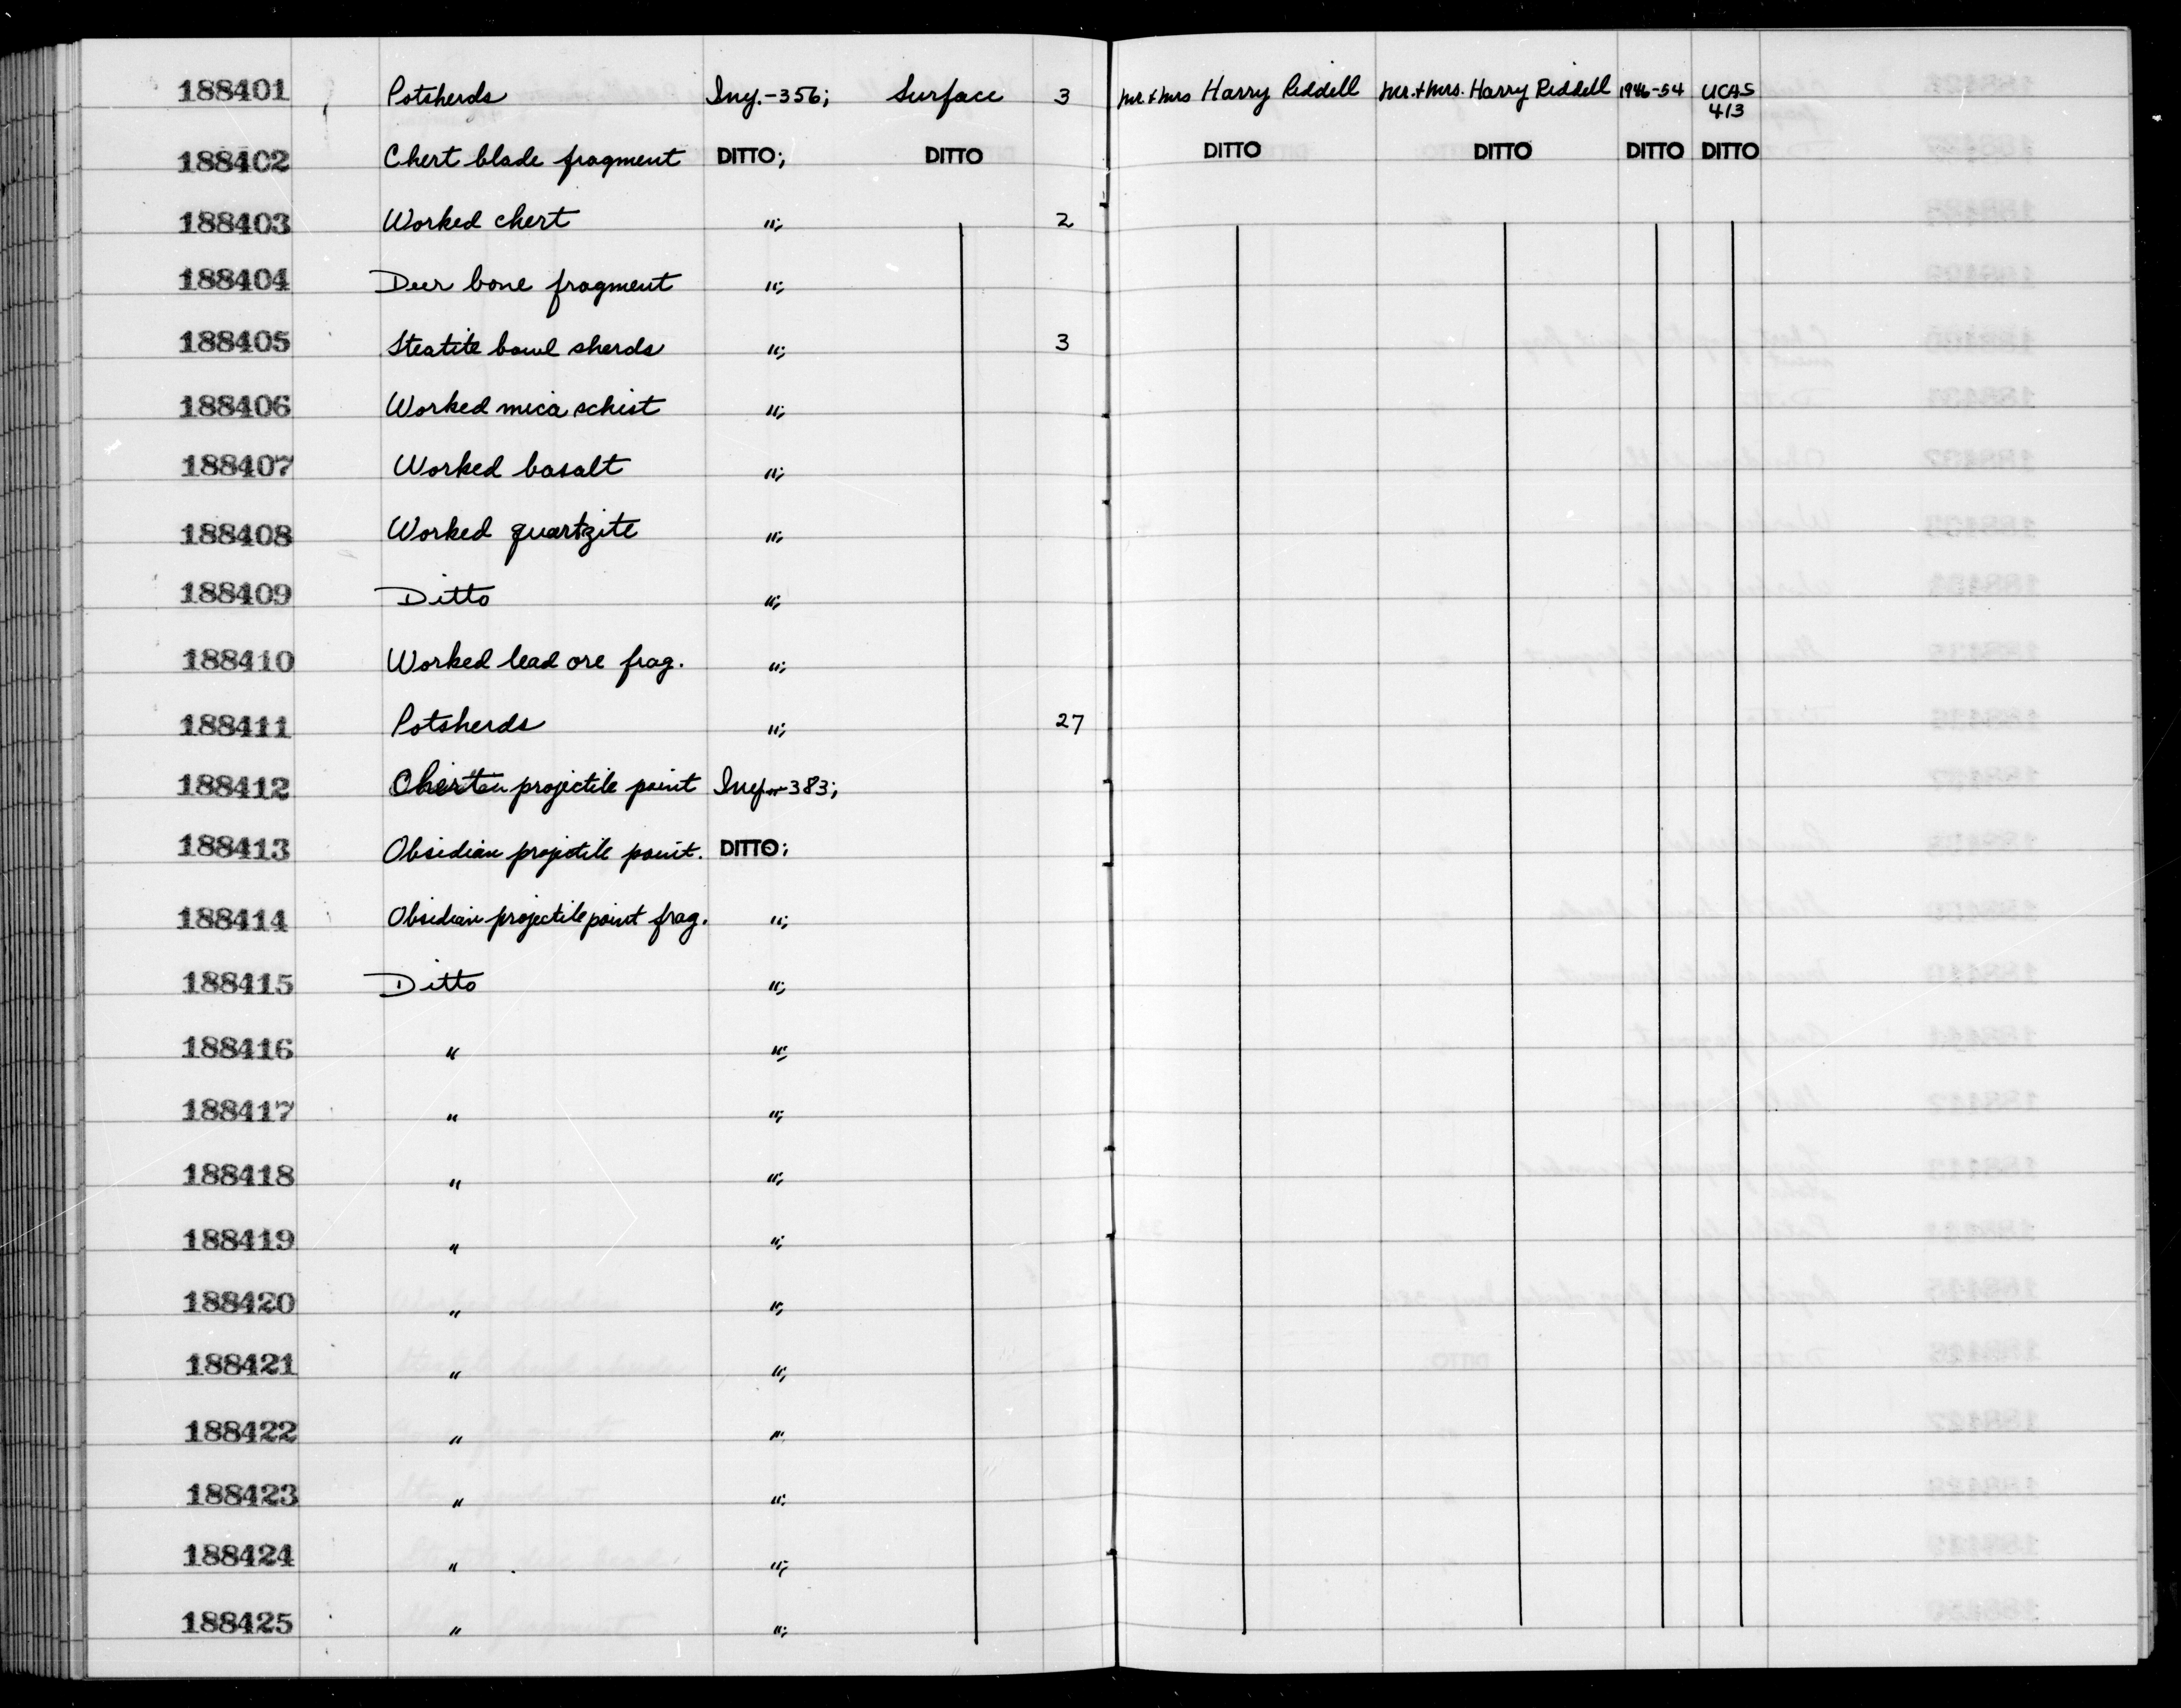 188401 Potsherds Iny.-356; Surface 3 Mr. & Mrs Harry Riddell Mr. & Mrs. Harry Riddell 1946-54 UCAS
413
188402 Chert blade fragment DITTO; DITTO DITTO DITTO DITTO DITTO
188403 Worked chert "; 2
188404 Deer bone fragment ";
188405 Steatite bowl sherds "; 3
188406 Worked mica schist ";
188407 Worked basalt ";
188408 Worked quartzite ";
188409 Ditto ";
188410 Worked lead ore frag. ";
188411 Potsherds "; 27
188412 projectile point Iny-383;
188413 Obsidian projectile point. DITTO;
188414 Obsidian projectile point frag. ";
188415 Ditto ";
188416 " ";
188417 " ";
188418 " ";
188419 " ";
188420 " ";
188421 " ";
188422 " ";
188423 " ";
188424 " ";
188425 " ";